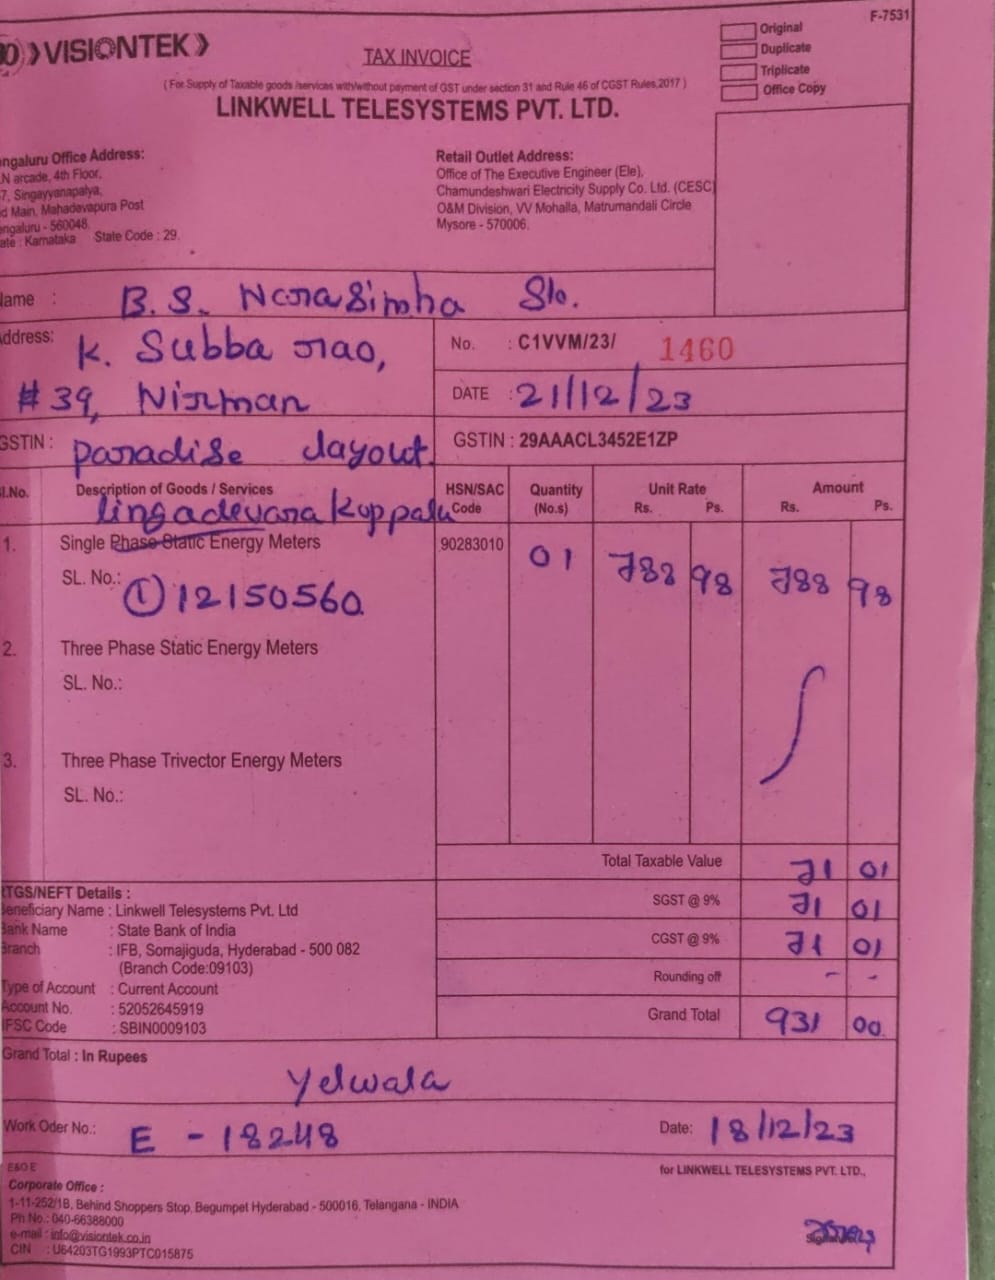 VISIONTEK
F-7531
TAX INVOICE
Original
Duplicate
Triplicate
Office Copy
(For Supply of Taxable goods /services with/without payment of GST under section 31 and Rule 46 of CGST Rules,2017)
LINKWELL TELESYSTEMS PVT. LTD.
ngaluru Office Address:
N arcade, 4th Floor,
7, Singayyanapalya,
d Main, Mahadevapura Post
engaluru - 560048.
ate : Karnataka State Code : 29.
Retail Outlet Address:
Office of The Executive Engineer (Ele),
Chamundeshwari Electricity Supply Co. Ltd. (CESC)
O&M Division, VV Mohalla, Matrumandali Circle
Mysore - 570006.
Name : B.S. Narasimha S/o.
Address: K. Subba rao,
# 39, Nirman
No. : C1VVM/23/ 1460
DATE : 21/12/23
GSTIN : paradise layout
GSTIN : 29AAACL3452E1ZP
Sl.No. Description of Goods / Services HSN/SAC Code Quantity (No.s) Unit Rate Rs. Ps. Amount Rs. Ps.
lingadevara Koppalu
1. Single Phase Static Energy Meters 90283010 01 788 98 788 98
SL. No.: ① 12150560
2. Three Phase Static Energy Meters
SL. No.:
3. Three Phase Trivector Energy Meters
SL. No.:
Total Taxable Value 71 01
SGST @ 9% 71 01
CGST @ 9% 71 01
Rounding off - -
Grand Total 931 00
RTGS/NEFT Details :
Beneficiary Name : Linkwell Telesystems Pvt. Ltd
Bank Name : State Bank of India
Branch : IFB, Somajiguda, Hyderabad - 500 082
(Branch Code:09103)
Type of Account : Current Account
Account No. : 52052645919
IFSC Code : SBIN0009103
Grand Total : In Rupees
Yelwala
Work Oder No.: E - 18248
Date: 18/12/23
E&O E
for LINKWELL TELESYSTEMS PVT. LTD.,
Corporate Office :
1-11-252/1B, Behind Shoppers Stop, Begumpet Hyderabad - 500016, Telangana - INDIA
Ph No.: 040-66388000
e-mail : info@visiontek.co.in
CIN : U64203TG1993PTC015875